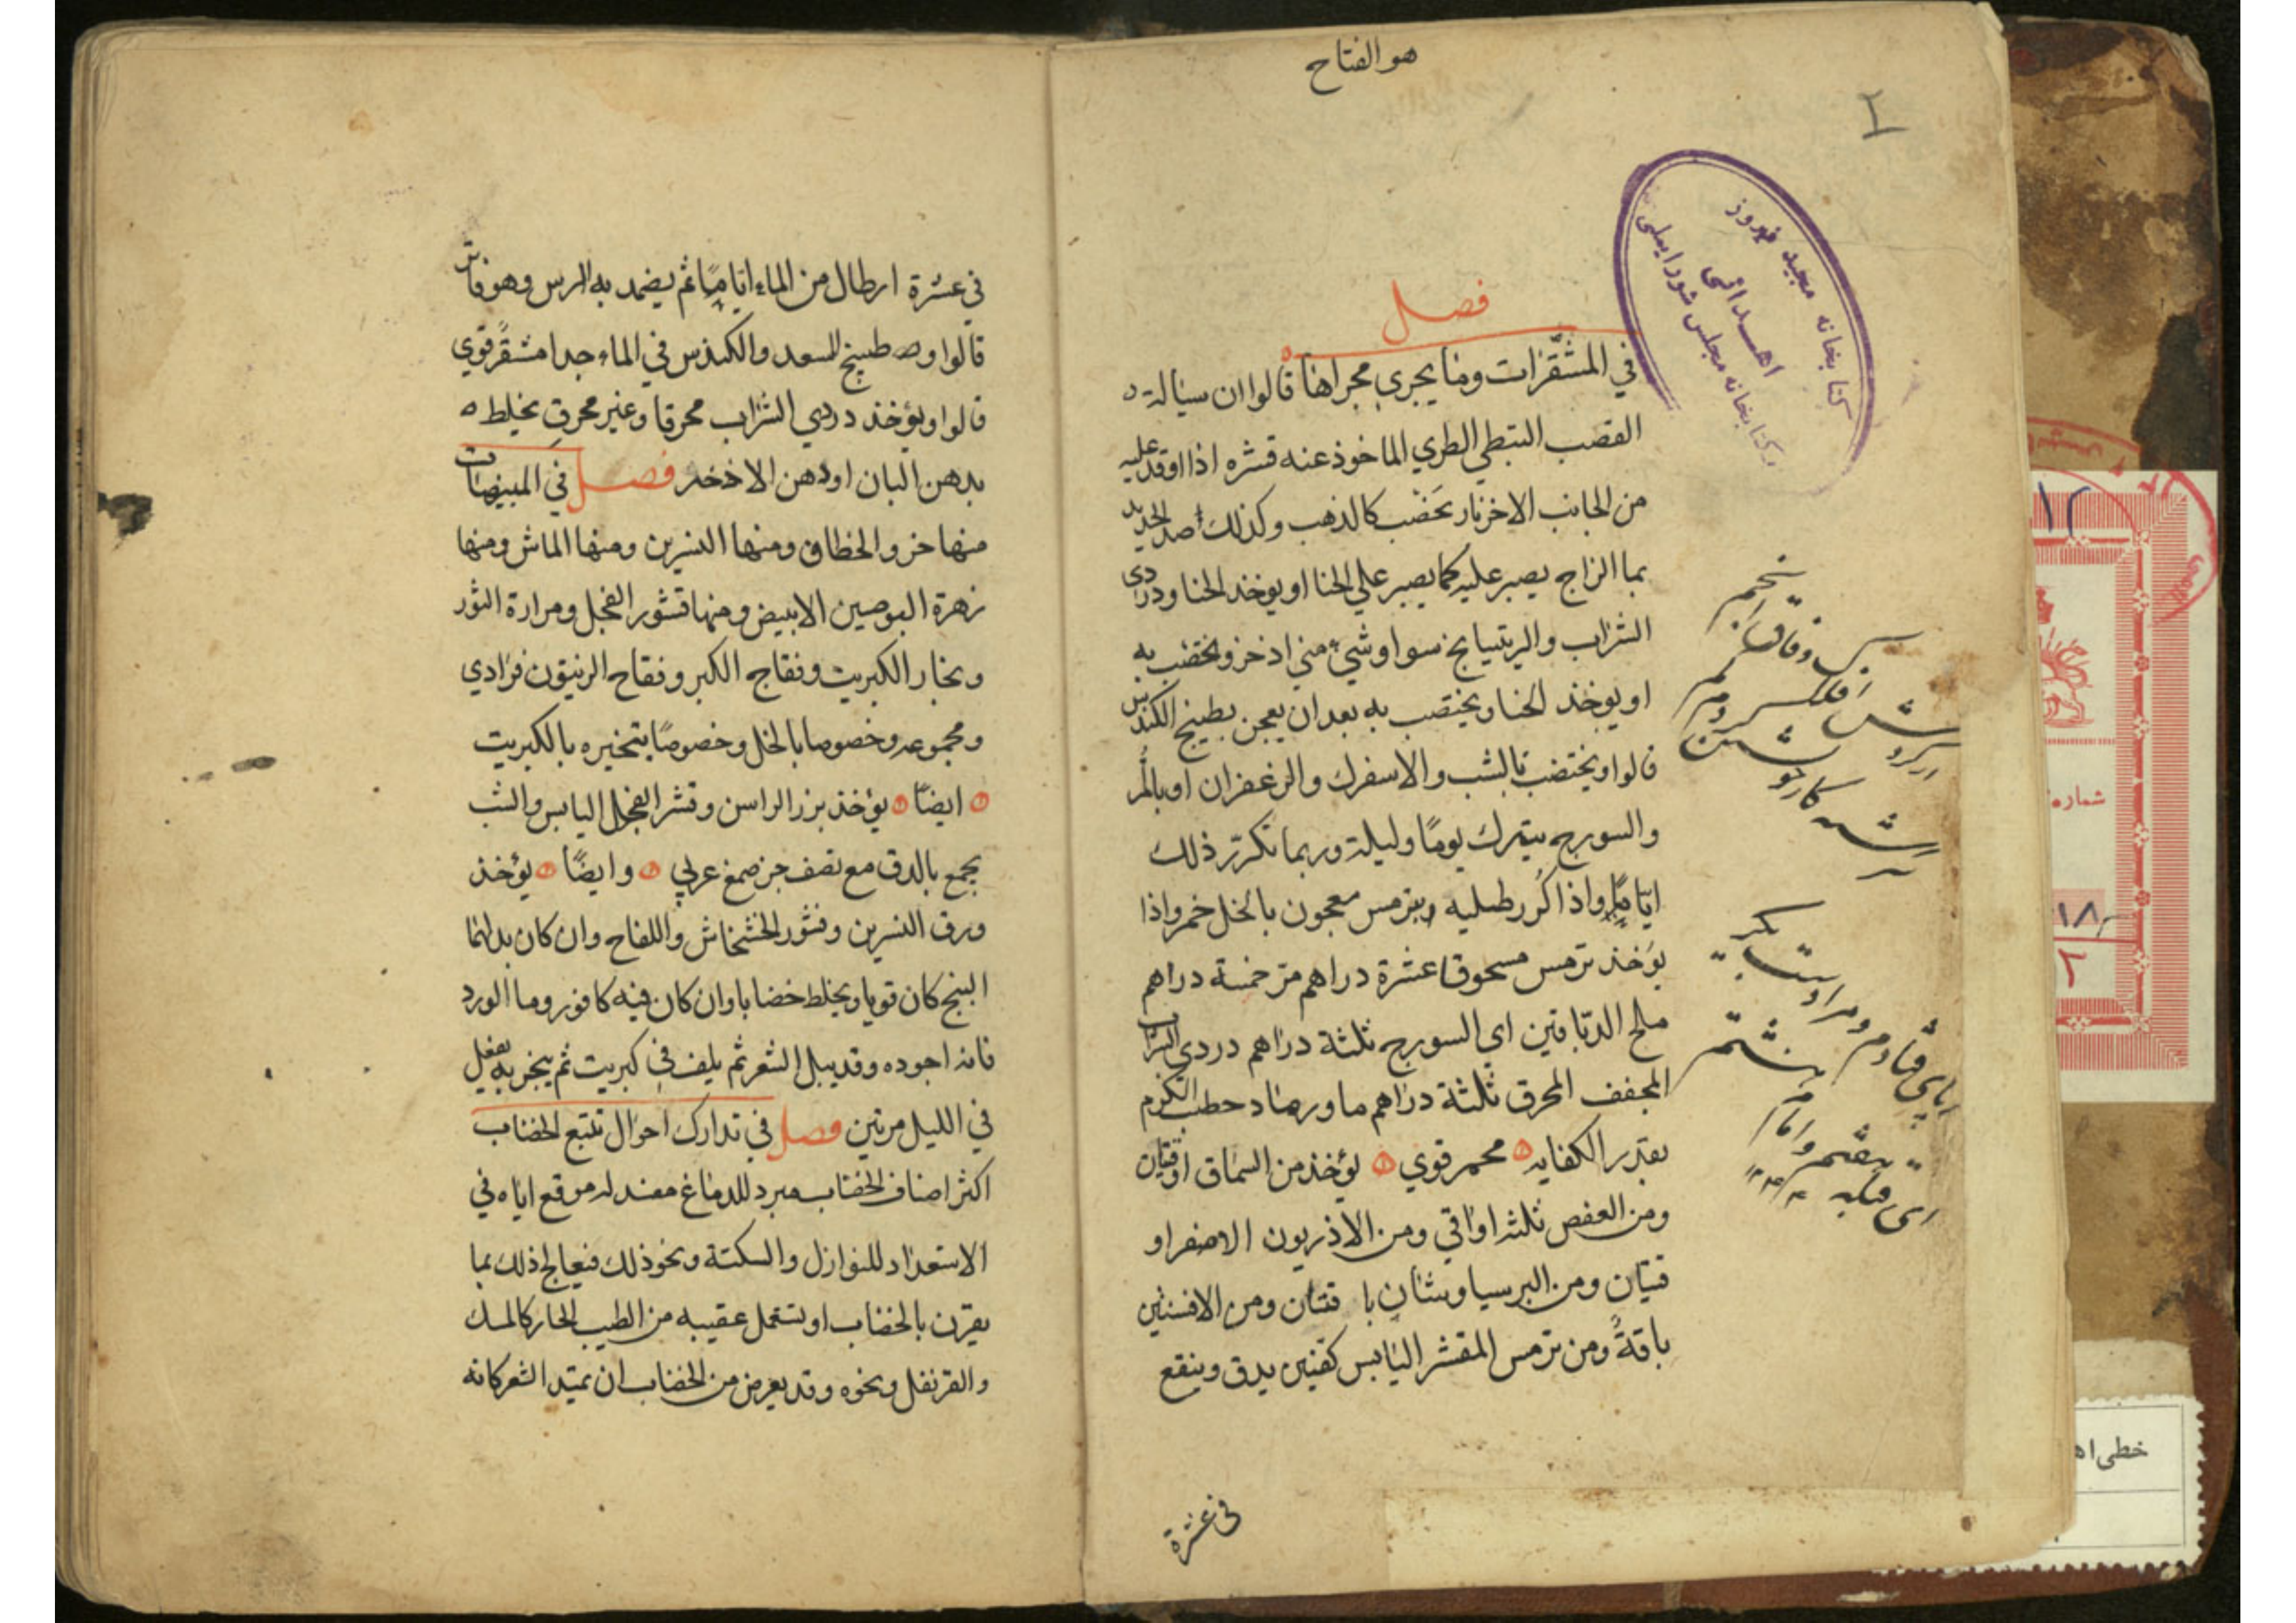 هو الفتاح
٢
کتابخانه مجید فیروز
اهدائی
بکتابخانه مجلس شورایملی
فصل
في المشقّرات وما يجري مجراها قالوا ان سيالة
القصب النبطي الطري الماخوذ عنه قشره اذا اوقد عليه
من الجانب الاخر نار تخضب كالذهب وكذلك صدا الحديد
بما الزاج يصبر عليه كما يصبر علي الحنا او يوخذ الحنا ودردي
الشراب والريتيانج سوا وشي من اذخر ويختضب به
او يوخذ الحنا ويختضب به بعد ان يعجن بطبيخ الكندس
قالوا ويختضب بالشب والاسفرك والزعفران او بالمُر
والسورج يترك يومًا وليلة وربما تكرّر ذلك
ايامًا واذا كُرر طليه بترمس معجون بالخل خمر واذا
يؤخذ ترمس مسحوق عشرة دراهم مرّ خمسة دراهم
ملح الدباغين اي السورج ثلثة دراهم دردي الشراب
المجفف المحرق ثلثة دراهم ما ورماد حطب الكرم
بقدر الكفايه محمر قوي يؤخذ من السماق اوقيتان
ومن العفص ثلثه اواقي ومن الاذريون الاصفر او
قيتان ومن البرسياوشان باقتان ومن الافسنتين
باقةً ومن ترمس المقشر اليابس كفين يدق وينقع
في عشرة
في عشرة ارطال من الماء ايامًا ثم يضمد به الرس وهو فاتر
قالوا وه طبيخ السعد والكندس في الماء جدا مشقّر قوي
قالوا ويؤخذ دردي الشراب محرقا وغير محرق يخلط ه
بدهن البان او دهن الاذخر فصل في المبيضات
منها خرو الخطاف ومنها النسرين ومنها الماش ومنها
زهرة البوصين الابيض ومنها قشور الفجل ومرارة الثور
وبخار الكبريت وفقاح الكبر وفقاح الزيتون فرادي
ومجموعه وخصوصا بالخل وخصوصًا بتخيره بالكبريت
ايضًا يؤخذ بزر الراسن وقشر الفجل اليابس والشب
يجمع بالدق مع نصف جز صمغ عربي وايضًا يؤخذ
ورق النسرين وقشور الخشخاش واللفاح وان كان بدلهما
البنج كان قويا ويخلط خضابا وان كان فيه كافور وما الورد
فانه اجوده وقد يبل الشعر ثم يلف في كبريت ثم يبخر به يفعل
في الليل مرتين فصل في تدارك احوال تتبع الخضاب
اكثر اصناف الخضاب مبرد للدماغ مفسد له موقع اياه في
الاستعداد للنوازل والسكتة ونحو ذلك فيعالج ذلك بما
يقرن بالخضاب او يستعمل عقيبه من الطيب الحار كالمسك
والقرنفل ونحوه وقد يعرض من الخضاب ان يمتد الشعر كانه
شماره
خطی اهـ